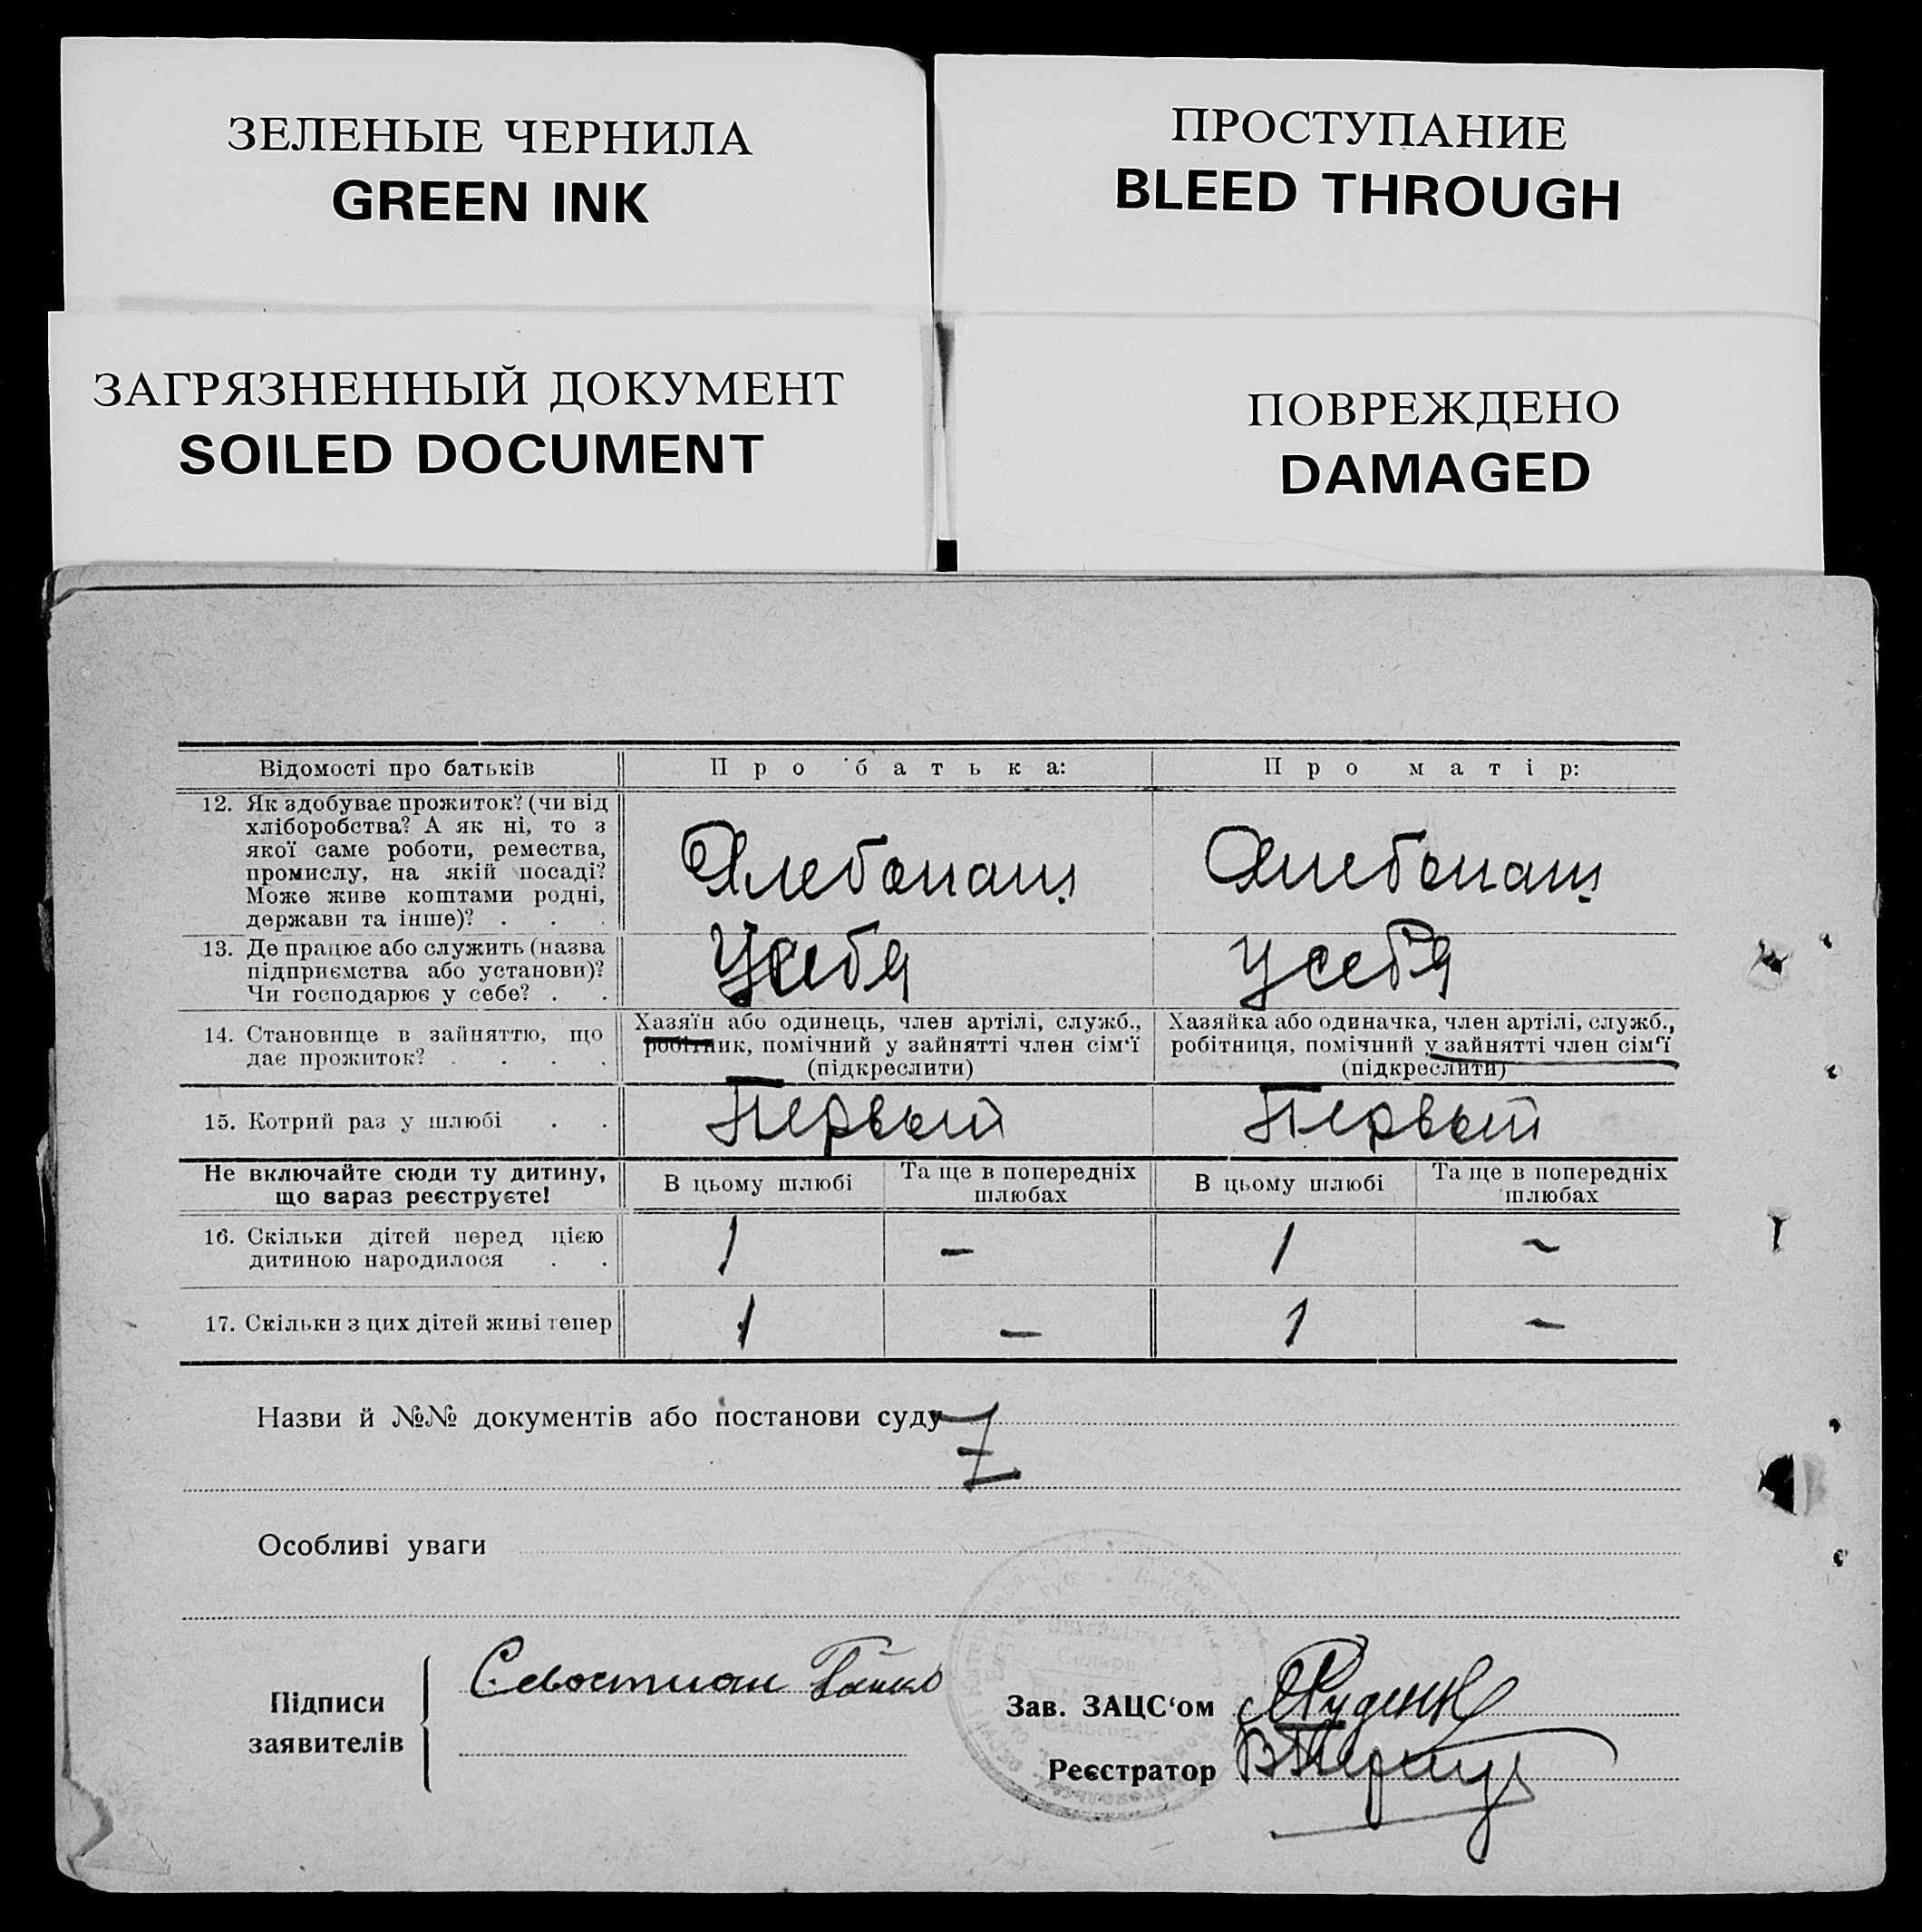 ЗЕЛЕНЫЕ ЧЕРНИЛА
GREEN INK
ПРОСТУПАНИЕ
BLEED THROUGH
ЗАГРЯЗНЕННЫЙ ДОКУМЕНТ
SOILED DOCUMENT
ПОВРЕЖДЕНО
DAMAGED
Відомості про батьків
Про батька:
Про матір:
12. Як здобуває прожиток? (чи від
хліборобства? А як ні, то з
якої саме роботи, ремества,
промислу, на якій посаді?
Може живе коштами родні,
держави та інше)? . . .
Хлебопаш.
Хлебопаш.
13. Де працює або служить (назва
підприємства або установи)?
Чи господарює у себе? . .
У себя
у себя
14. Становище в зайняттю, що
дає прожиток? . . . .
Хазяїн або одинець, член артілі, служб.,
робітник, помічний у зайнятті член сім‘ї
(підкреслити)
Хазяйка або одиначка, член артілі, служб.,
робітниця, помічний у зайнятті член сім‘ї
(підкреслити)
15. Котрий раз у шлюбі . .
Первый
Первый
Не включайте сюди ту дитину,
що зараз реєструєте!
В цьому шлюбі
Та ще в попередніх
шлюбах
В цьому шлюбі
Та ще в попередніх
шлюбах
16. Скільки дітей перед цією
дитиною народилося . .
1
-
1
~
17. Скільки з цих дітей живі тепер
1
-
1
~
Назви й №№ документів або постанови суду
Особливі уваги
Підписи
заявителів
Севостиан
Зав. ЗАЦС‘ом
Руденк
Реєстратор